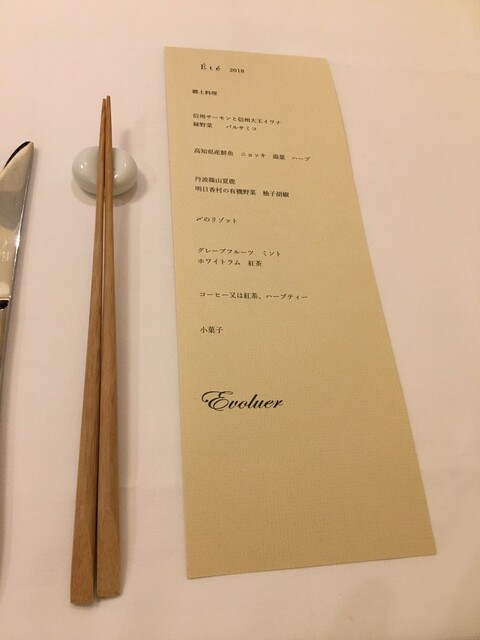 Été 2018
郷土料理
信州サーモンと信州大王イワナ
緑野菜 バルサミコ
高知県産鮮魚 ニョッキ 蕪菜 ハーブ
丹波篠山夏鹿
明日香村の有機野菜 柚子胡椒
〆のリゾット
グレープフルーツ ミント
ホワイトラム 紅茶
コーヒー又は紅茶、ハーブティー
小菓子
Evoluer